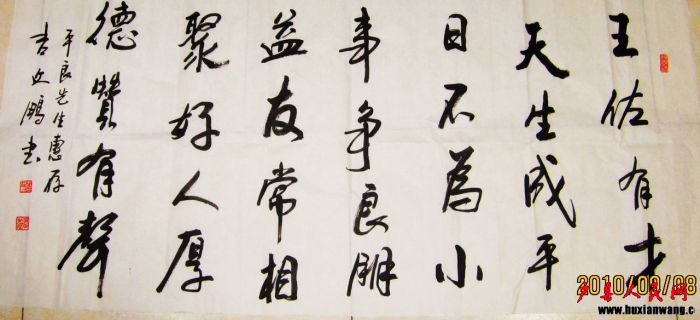 王佐有才
天生成平
日不為小
事爭良朋
益友常相
聚好人厚
德贊有聲
平良先生惠存
吉文鵬书
2010/09/08
户县人民网
www.huxianwang.c